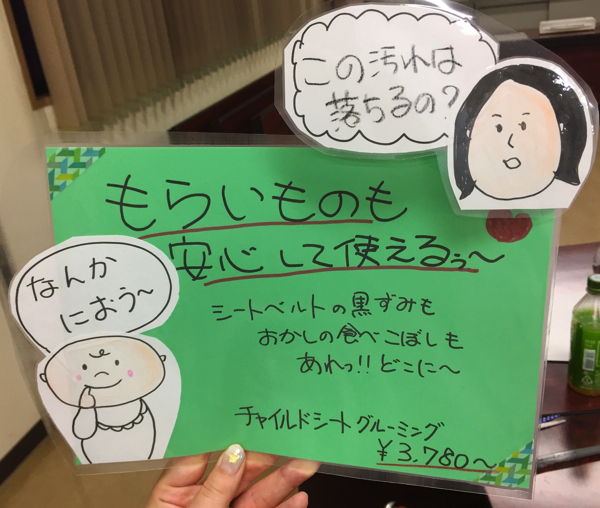 この汚れは
落ちるの?
もらいものも
安心して使えるぅ～
なんか
におう～
シートベルトの黒ずみも
おかしの食べこぼしも
あれっ!!どこに～
チャイルドシートグルーミング
¥3,780～